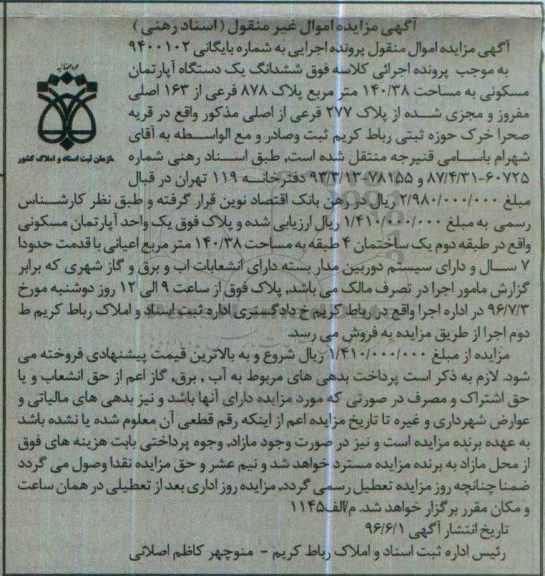 آگهی مزایده اموال غیر منقول (اسناد رهنی)
آگهی مزایده اموال منقول پرونده اجرایی به شماره بایگانی ۹۴۰۰۱۰۲
به موجب پرونده اجرائی کلاسه فوق ششدانگ یک دستگاه آپارتمان
مسکونی به مساحت ۱۴۰/۳۸ متر مربع پلاک ۸۷۸ فرعی از ۱۶۳ اصلی
مفروز و مجزی شده از پلاک ۲۷۷ فرعی از اصلی مذکور واقع در قریه
صحرا خرک حوزه ثبتی رباط کریم ثبت وصادر و مع الواسطه به آقای
شهرام باسامی قنیرجه منتقل شده است, طبق اسناد رهنی شماره
۶۰۷۲۵-۸۷/۴/۳۱ و ۷۸۱۵۵-۹۳/۲/۱۳ دفترخانه ۱۱۹ تهران در قبال
مبلغ ۲/۹۸۰/۰۰۰/۰۰۰ ریال در رهن بانک اقتصاد نوین قرار گرفته و طبق نظر کارشناس
رسمی به مبلغ ۱/۴۱۰/۰۰۰/۰۰۰ ریال ارزیابی شده و پلاک فوق یک واحد آپارتمان مسکونی
واقع در طبقه دوم یک ساختمان ۴ طبقه به مساحت ۱۴۰/۳۸ متر مربع اعیانی با قدمت حدودا
۷ سال و دارای سیستم دوربین مدار بسته دارای انشعابات اب و برق و گاز شهری که برابر
گزارش مامور اجرا در تصرف مالک می باشد, پلاک فوق از ساعت ۹ الی ۱۲ روز دوشنبه مورخ
۹۶/۷/۳ در اداره اجرا واقع در رباط کریم خ دادگستری اداره ثبت اسناد و املاک رباط کریم ط
دوم اجرا از طریق مزایده به فروش می رسد.
مزایده از مبلغ ۱/۴۱۰/۰۰۰/۰۰۰ ریال شروع و به بالاترین قیمت پیشنهادی فروخته می
شود. لازم به ذکر است پرداخت بدهی های مربوط به آب , برق, گاز اعم از حق انشعاب و یا
حق اشتراک و مصرف در صورتی که مورد مزایده دارای آنها باشد و نیز بدهی های مالیاتی و
عوارض شهرداری و غیره تا تاریخ مزایده اعم از اینکه رقم قطعی آن معلوم شده یا نشده باشد
به عهده برنده مزایده است و نیز در صورت وجود مازاد, وجوه پرداختی بابت هزینه های فوق
از محل مازاد به برنده مزایده مسترد خواهد شد و نیم عشر و حق مزایده نقدا وصول می گردد
ضمنا چنانچه روز مزایده تعطیل رسمی گردد, مزایده روز اداری بعد از تعطیلی در همان ساعت
و مکان مقرر برگزار خواهد شد. م/الف۱۱۴۵
تاریخ انتشار آگهی ۹۶/۶/۱
رئیس اداره ثبت اسناد و املاک رباط کریم - منوچهر کاظم اصلانی
سازمان ثبت اسناد و املاک کشور